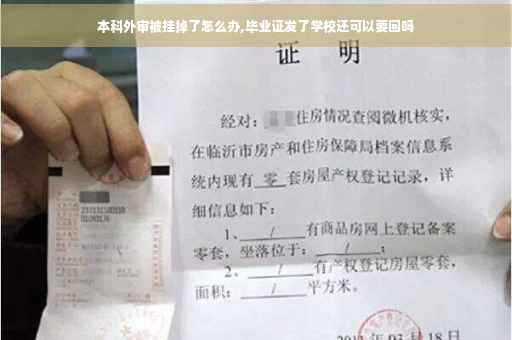 本科外审被挂掉了怎么办,毕业证发了学校还可以要回吗
证 明
经对: 住房情况查阅微机核实,
在临沂市房产和住房保障局档案信息系
统内现有 零 套房屋产权登记记录,详
细信息如下:
1、 / 有商品房网上登记备案
零套,坐落位于: / ;
2、 / 有产权登记房屋零套,
面积: / 平方米。
03月18日